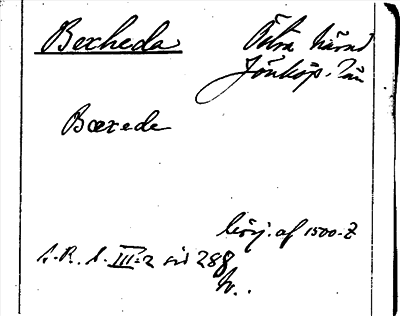 Bexheda Östra härad
Jönköp. län
Bæxede
börj. af 1500-t
S.R.S. III:2 sid 288